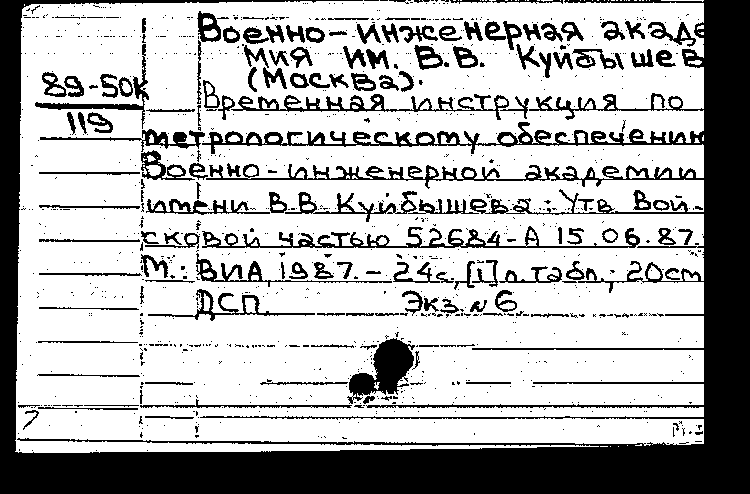 Военно-инженерная акаде
мия им. В.В. Куйбышев
(Москва).
89-50К
119
Временная инструкция по
метрологическому обеспечению
Военно-инженерной академии
имени В.В. Куйбышева: Утв. Вой-
сковой частью 52684-А 15.06.87.
М.: ВИА, 1987. - 24с., [1] л. табл.; 20см
ДСП. Экз. № 6.